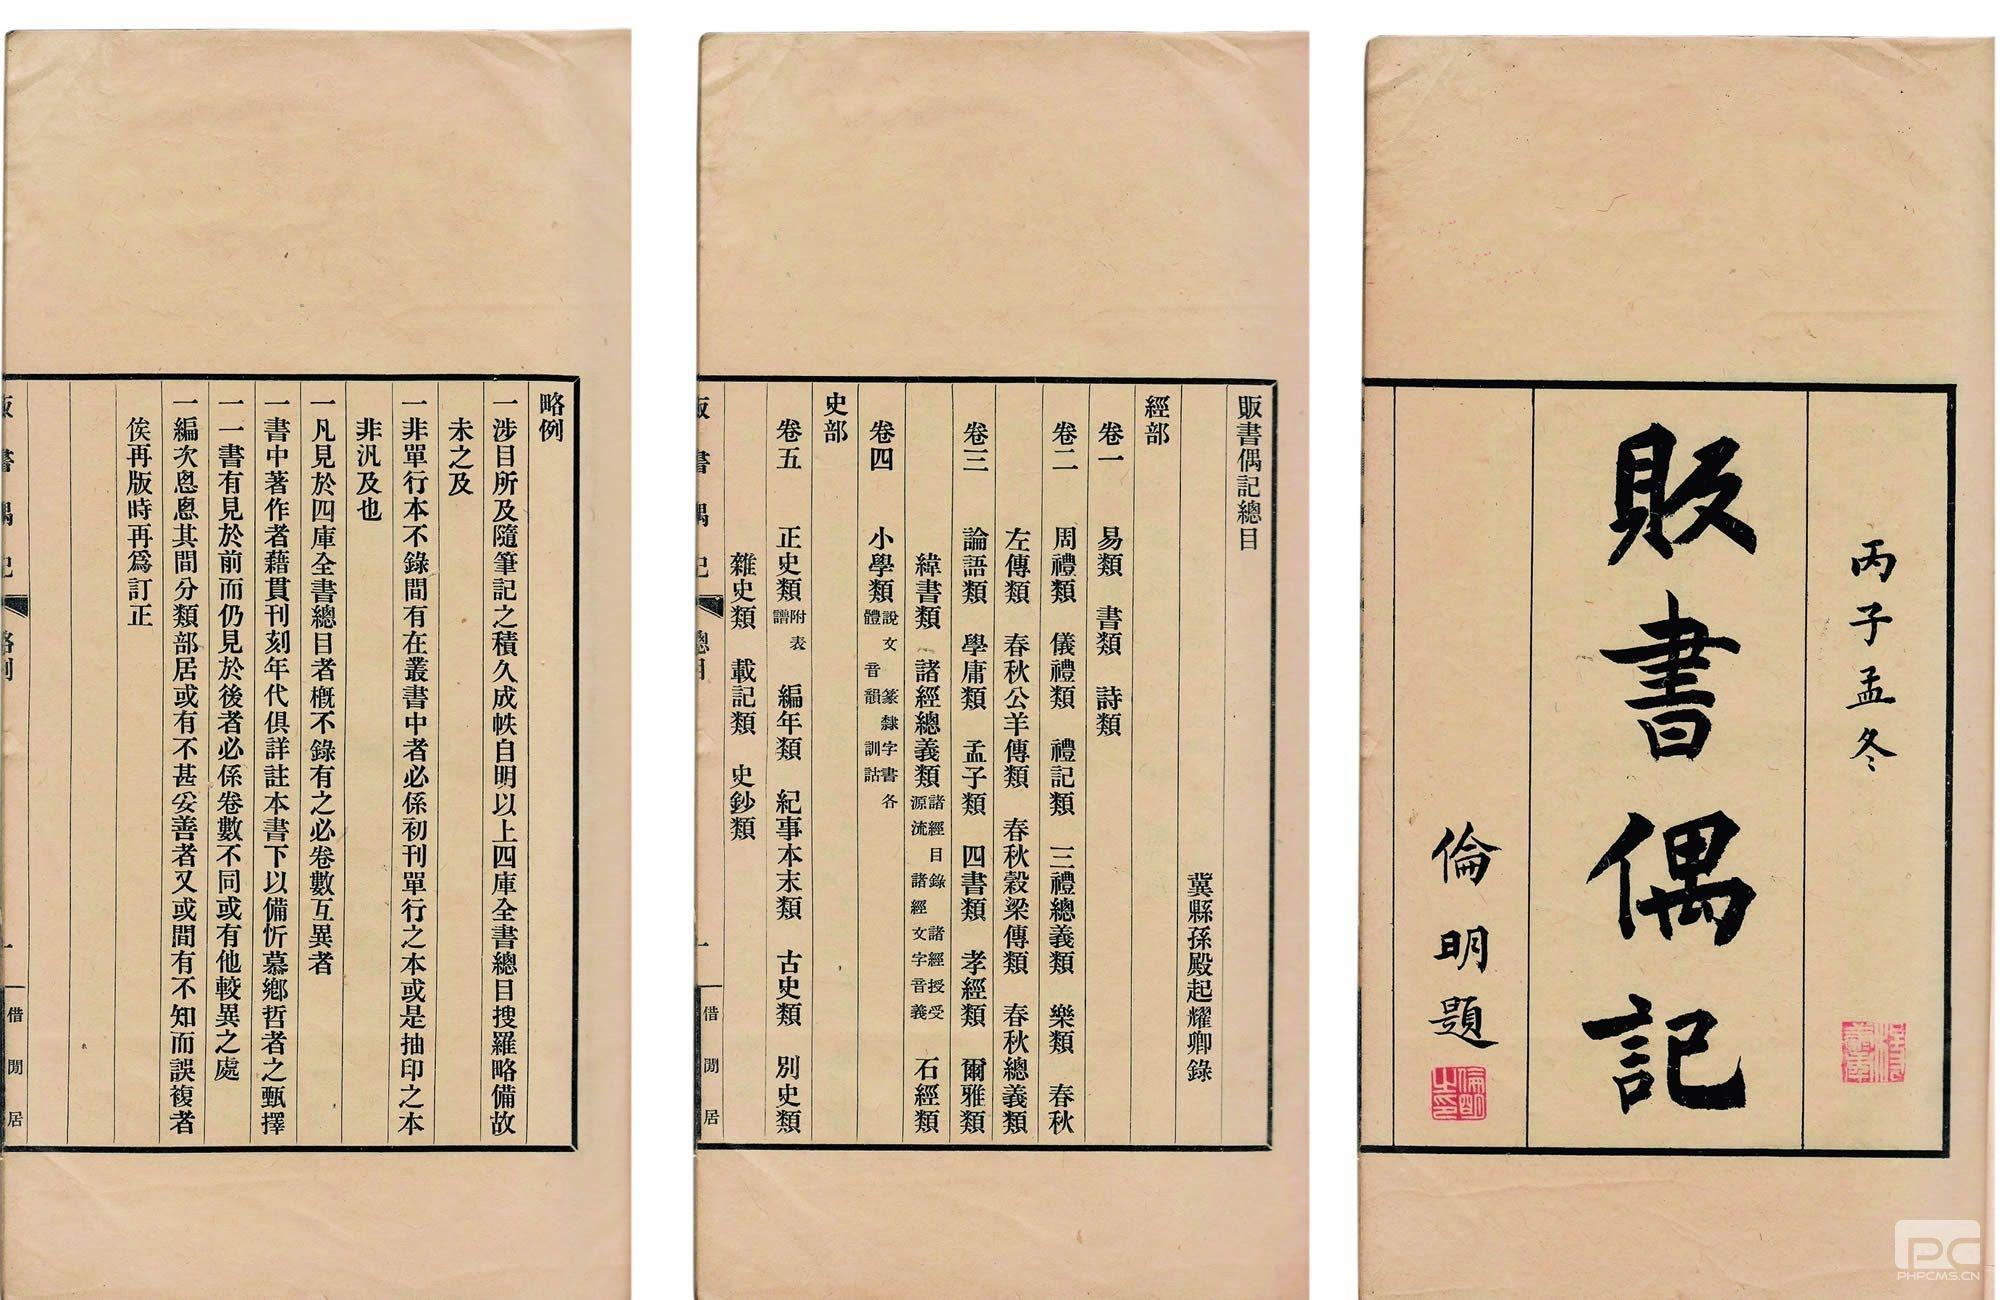 丙子孟冬
販書偶記
倫明題
倫明之印
販書偶記總目
冀縣孫殿起耀卿錄
經部
卷一 易類 書類 詩類
卷二 周禮類 儀禮類 禮記類 三禮總義類 樂類 春秋
左傳類 春秋公羊傳類 春秋穀梁傳類 春秋總義類
卷三 論語類 學庸類 孟子類 四書類 孝經類 爾雅類
緯書類 諸經總義類 諸經目錄 諸經授受源流 諸經文字音義 石經類
卷四 小學類 說文 篆隸字書各體 音韻 訓詁
史部
卷五 正史類 附表譜 編年類 紀事本末類 古史類 別史類
雜史類 載記類 史鈔類
販書偶記 總目 一 借閒居
略例
一涉目所及隨筆記之積久成帙自明以上四庫全書總目搜羅略備故
未之及
一非單行本不錄間有在叢書中者必係初刊單行之本或是抽印之本
非汎及也
一凡見於四庫全書總目者概不錄有之必卷數互異者
一書中著作者藉貫刊刻年代俱詳註本書下以備忻慕鄉哲者之甄擇
一一書有見於前而仍見於後者必係卷數不同或有他較異之處
一編次恖恖其間分類部居或有不甚妥善者又或間有不知而誤複者
俟再版時再爲訂正
販書偶記 略例 一 借閒居
PC
PHPCMS.CN